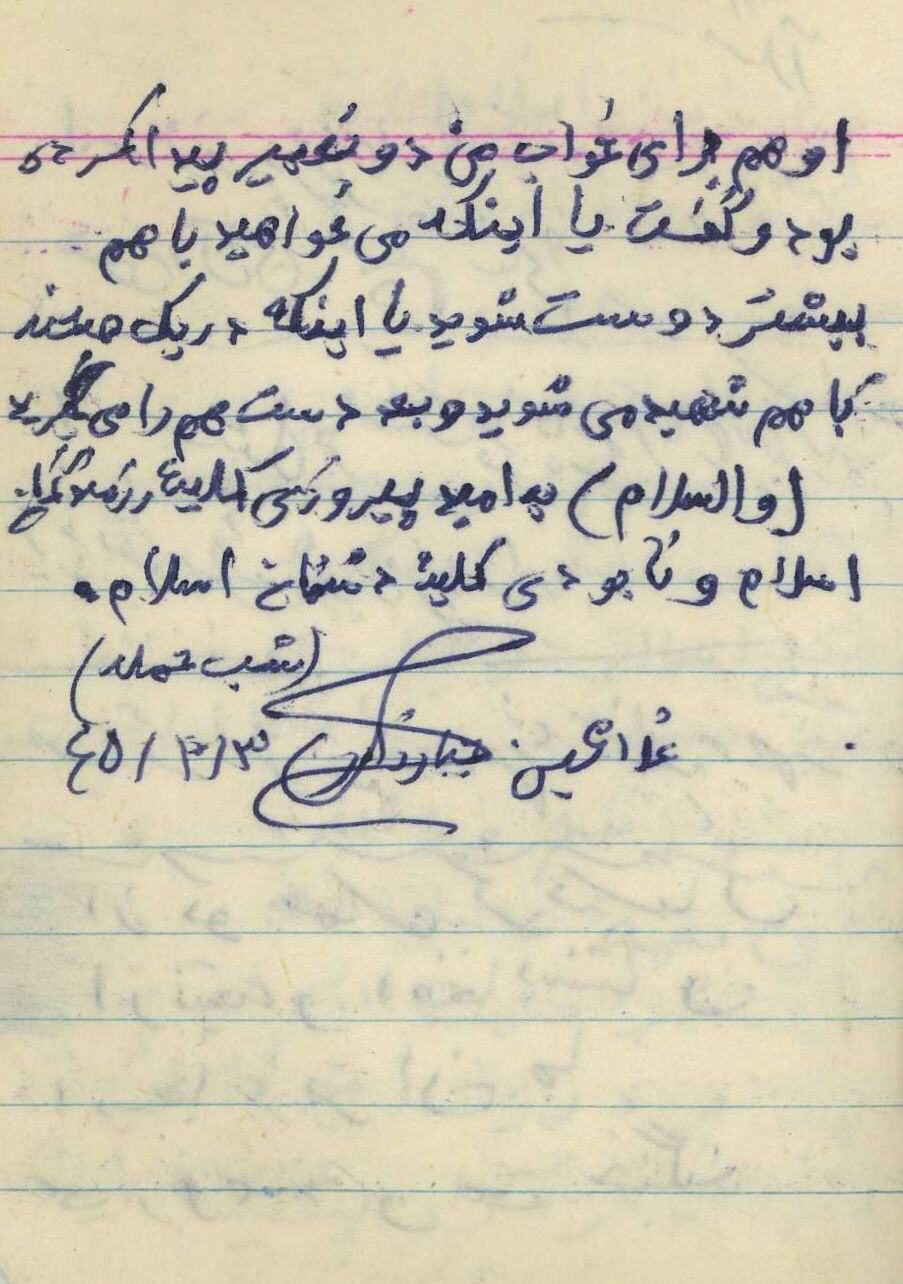 او هم برای خواب من دو تعبیر پیدا کرده
بود و گفت یا اینکه می خواهید با هم
بیشتر دوست شوید یا اینکه در یک
با هم شهید می شوید و بعد دست هم را می گیرید
(والسلام) به امید پیروزی کلیهٔ رزمندگان
اسلام و نابودی کلیهٔ دشمنان اسلام.
(شب حمله)
۶۵/۳/۳